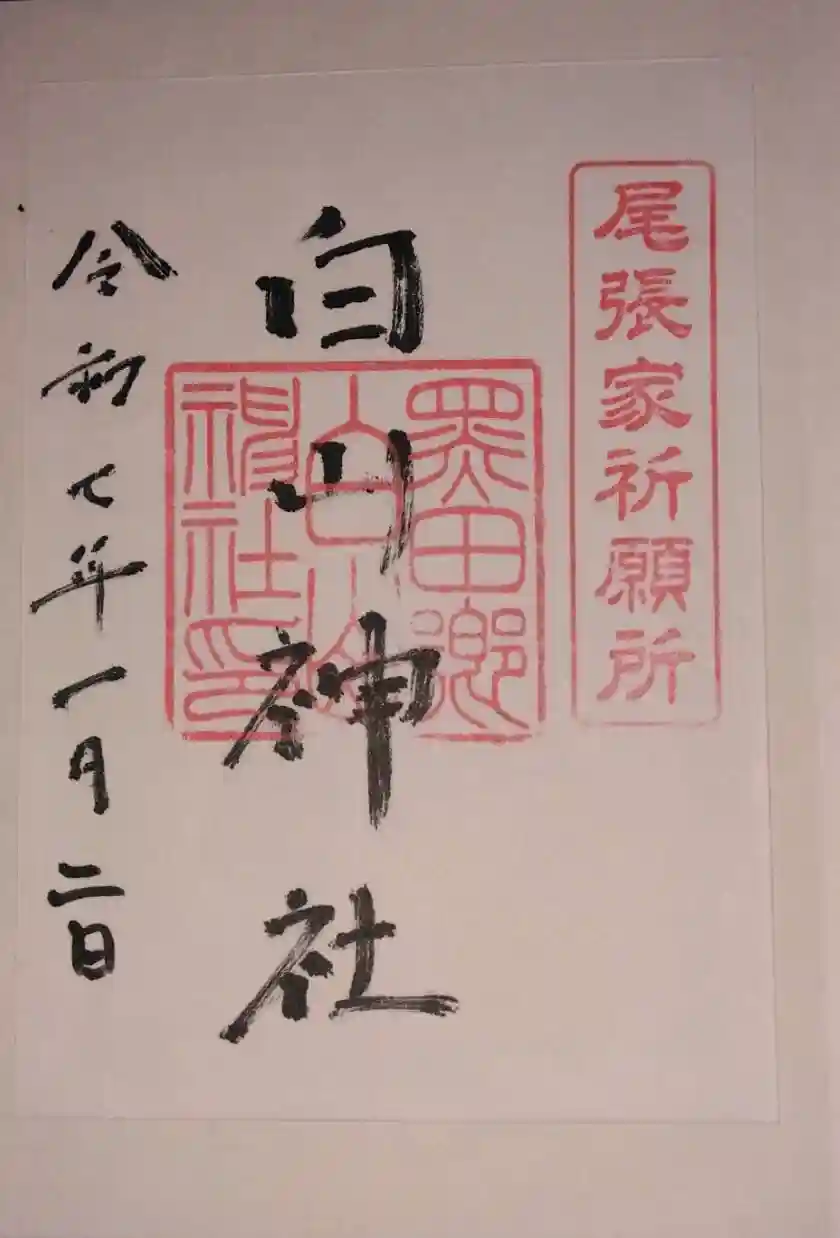 尾張家祈願所
白山神社
黒田郷
白山
神社印
令和七年一月二日